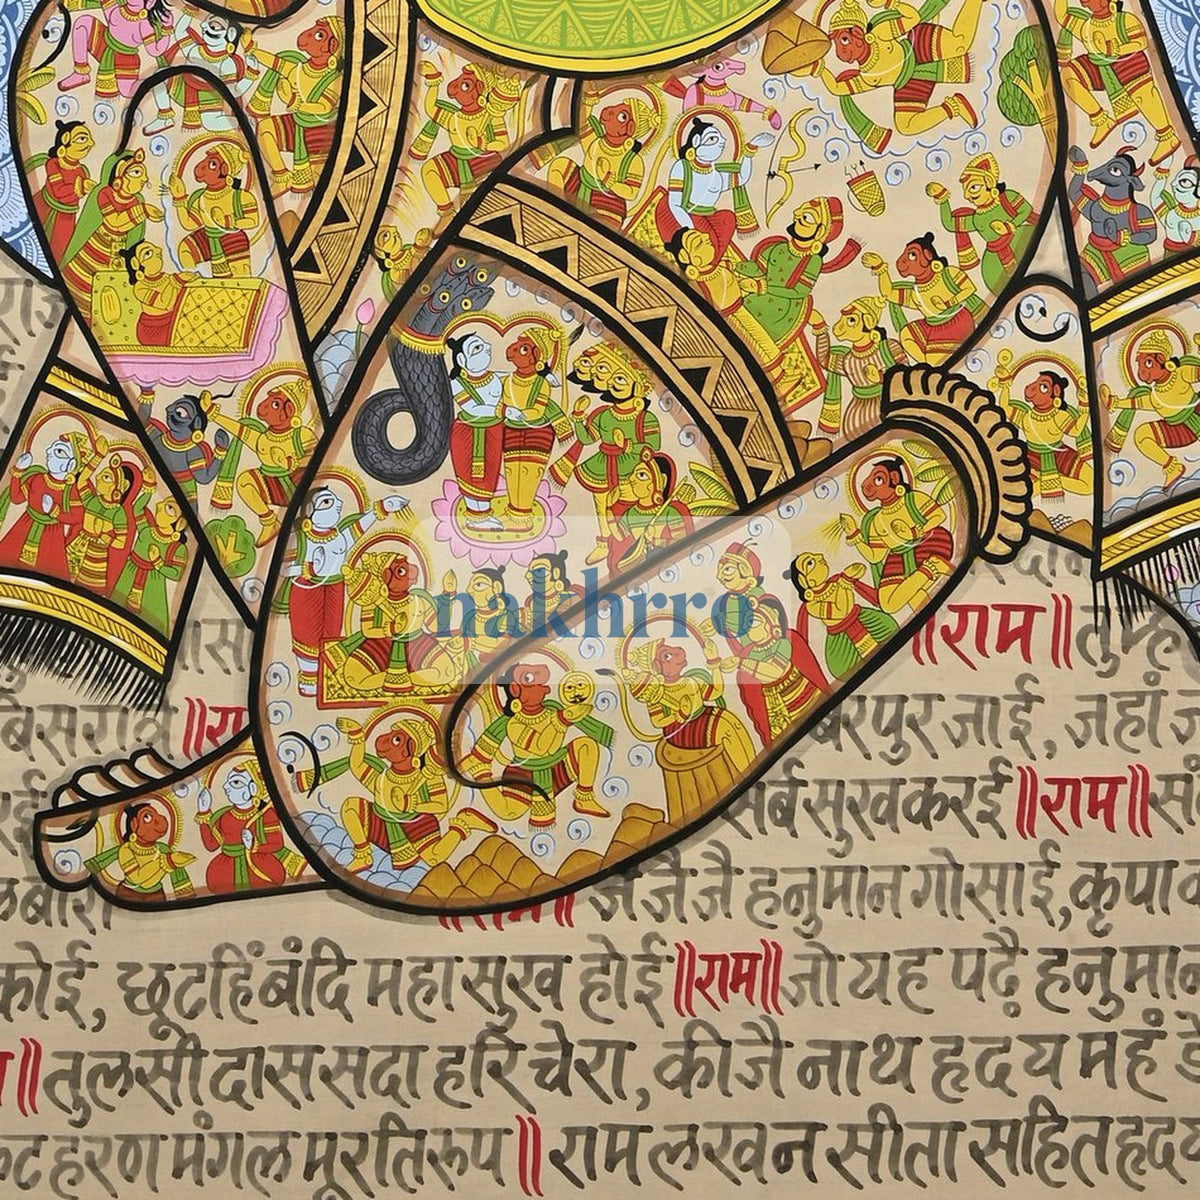 nakhrro
॥राम॥ तुम्ह
॥रा बरपुर जाई, जहां
सर्ब सुख करई ॥राम॥ सं
जै जै जै हनुमान गोसाईं, कृपा
कोई, छूटहिं बंदि महा सुख होई ॥राम॥ जो यह पढ़ै हनुमान
॥ तुलसीदास सदा हरि चेरा, कीजै नाथ हृदय महं डे
कट हरण मंगल मूरति रुप ॥ राम लखन सीता सहित हृदय